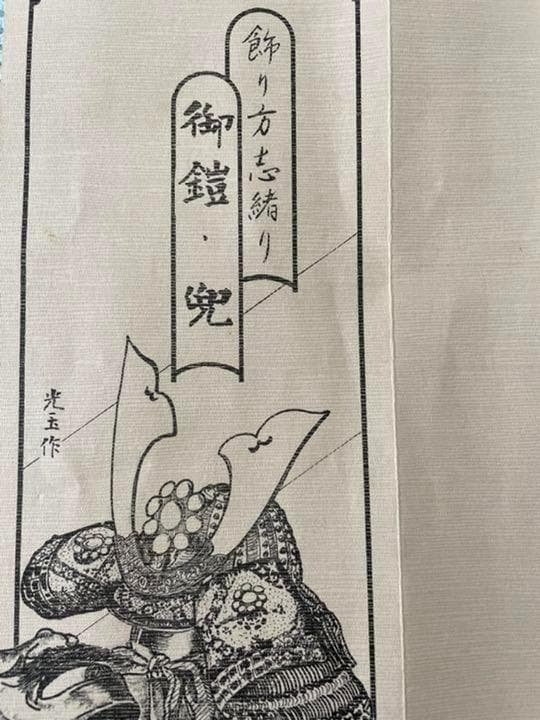 飾り方志緒り
御鎧・兜
光玉作